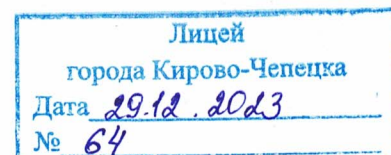 Лицей
города Кирово-Чепецка
Дата 29.12.2023
№ 64